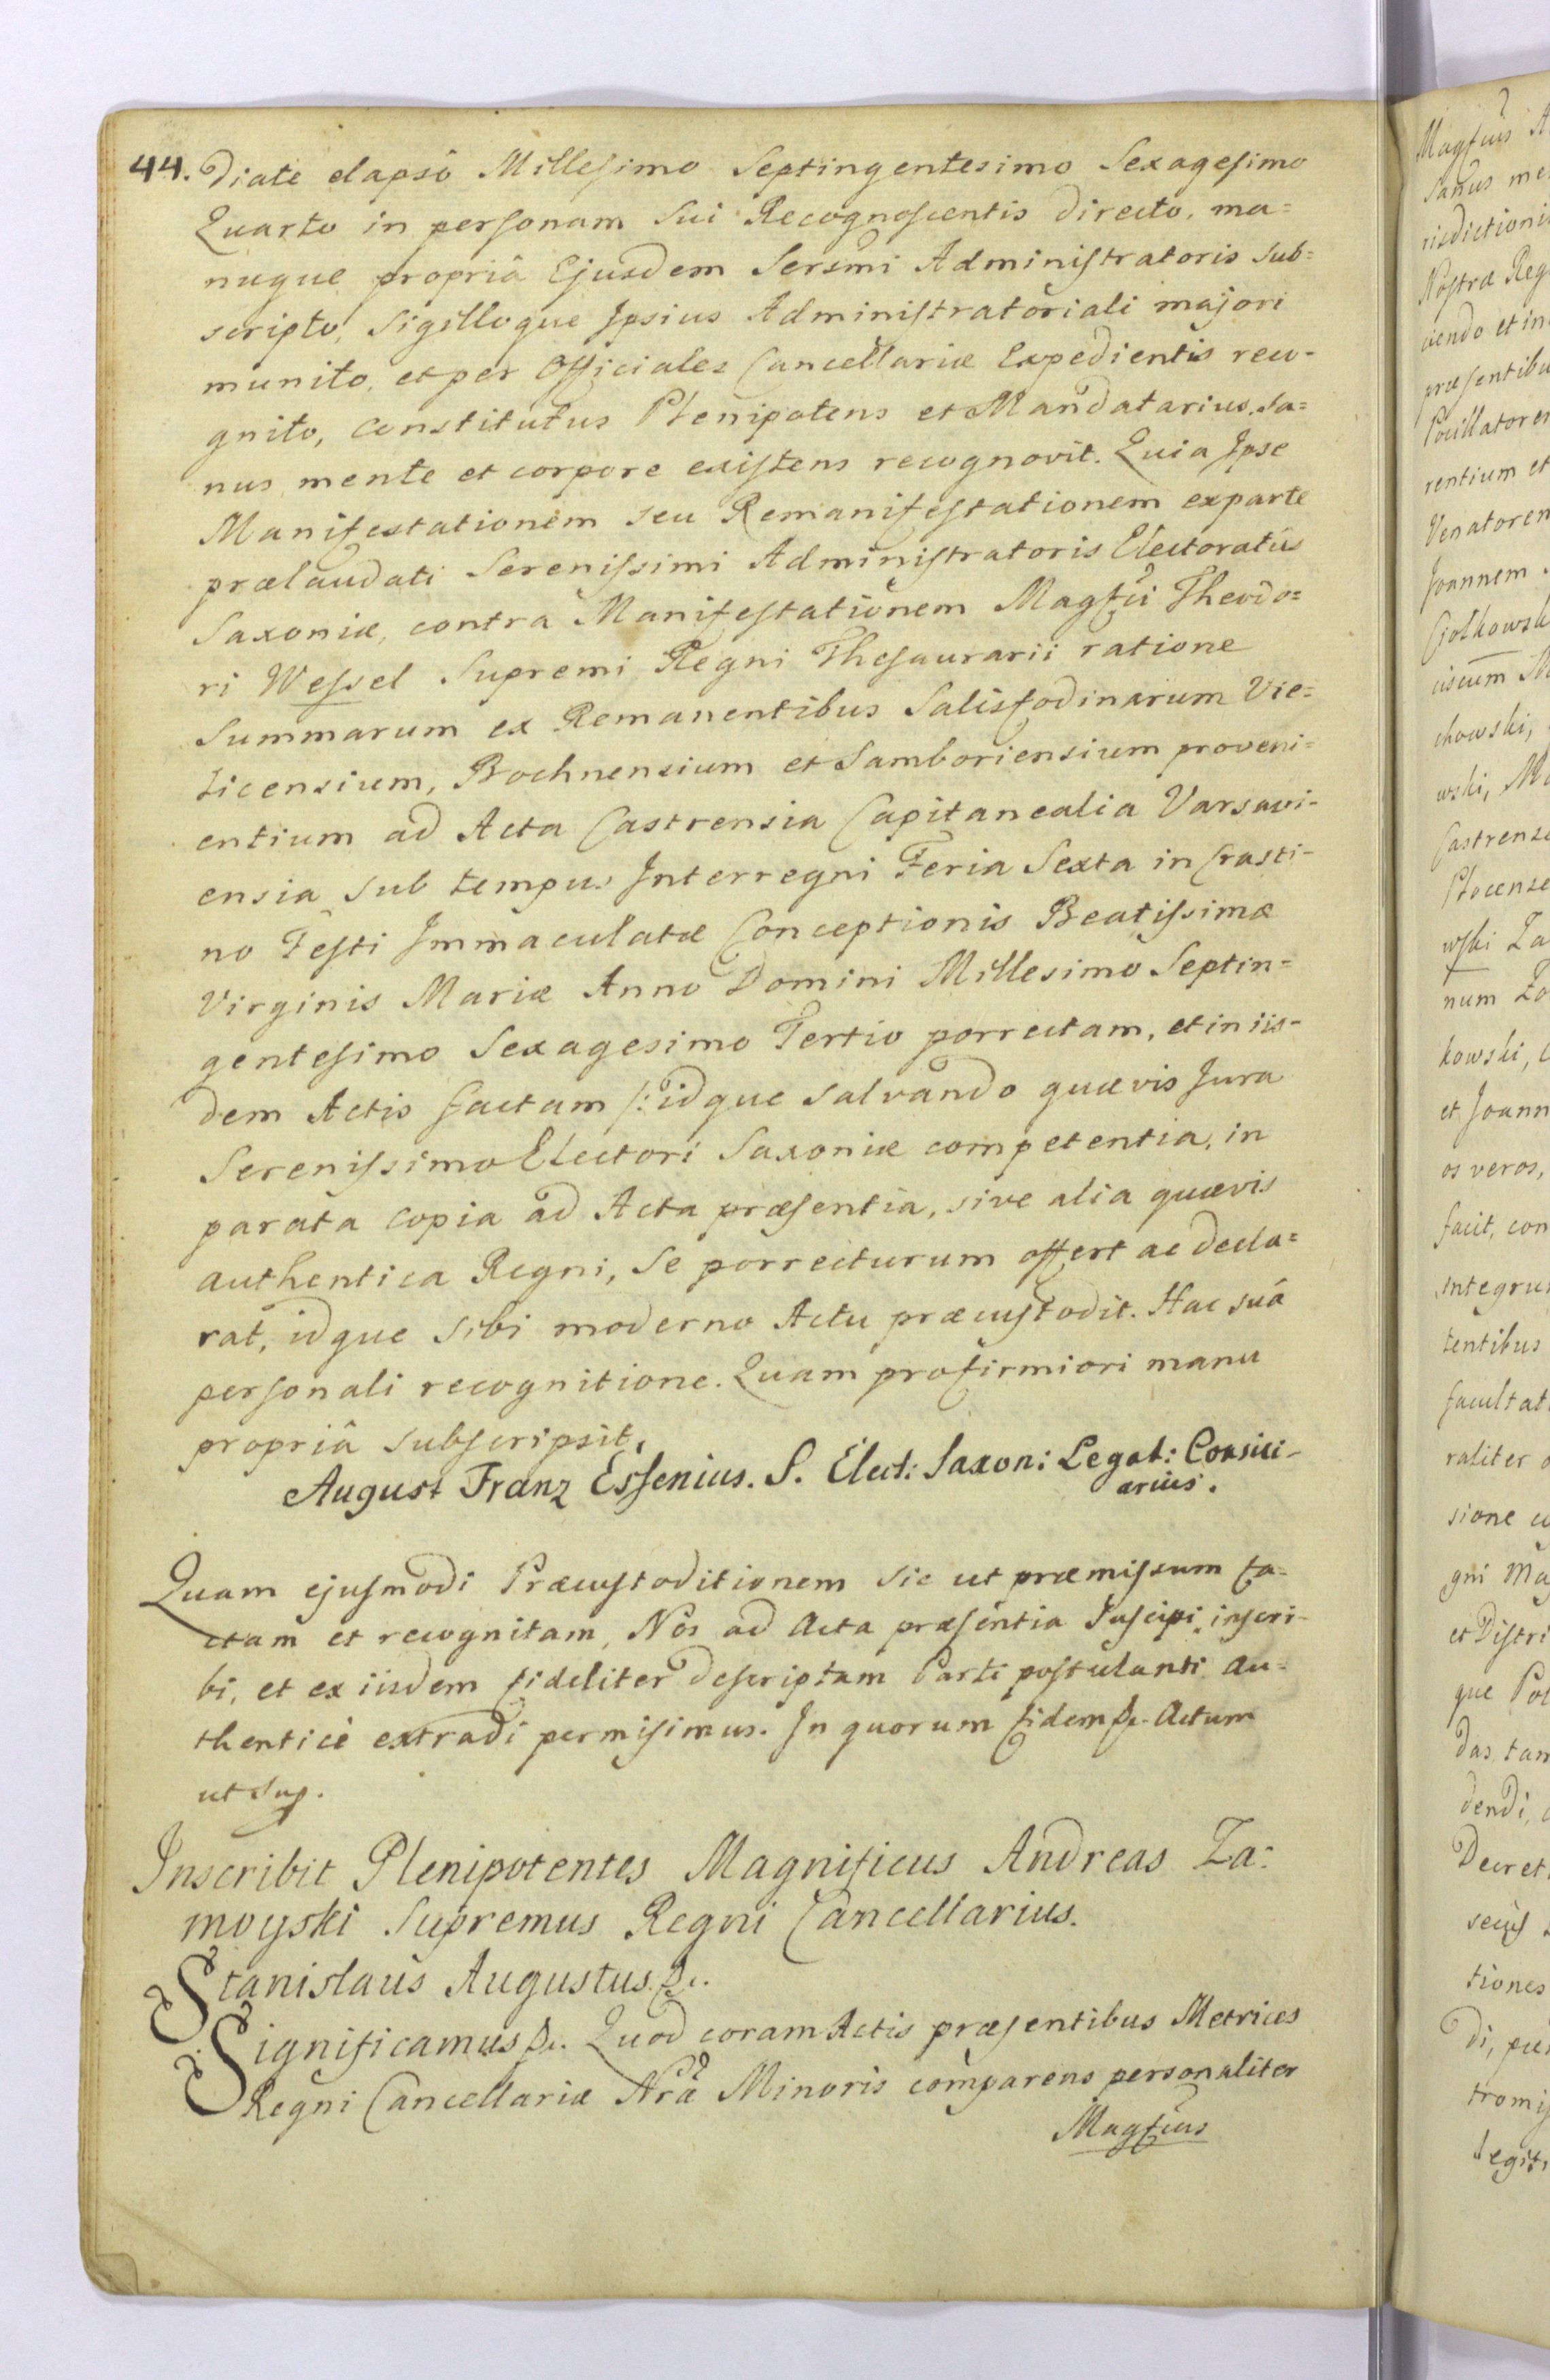 44. Diate elapsô Millesimo Septingentesimo Sexagesimo
Quarto in personam sui Recognoscentis directo, ma=
nuque propriâ Ejusdem Sersmi Administratoris sub=
scripto, Sigilloque Ipsius Administratoriali majori
munito, et per Officiales Cancellariæ Expedientis reco-
gnito, constitutus Plenipotens et Mandatarius, sa=
nus mente et corpore existens recognovit. Quia Ipse
Manifestationem seu Remanifestationem ex parte
prælaudati Serenissimi Administratoris Electoratûs
Saxoniæ, contra Manifestationem Magfci Theodo=
ri Wessel Supremi Regni Thesaurarii ratione
Summarum ex Remanentibus Salisfodinarum Vie=
licensium, Bochnensium et Samboriensium proveni=
entium ad Acta Castrensia Capitanealia Varsavi-
ensia sub tempus Interregni Feria Sexta in Crasti-
no Festi Immaculatæ Conceptionis Beatissimæ
Virginis Mariæ Anno Domini Millesimo Septin=
gentesimo Sexagesimo Tertio porrectam, et in iis-
dem Actis factam /: idque salvando quævis Jura
Serenissimo Electori Saxoniæ competentia, in
parata copia ad Acta præsentia, sive alia quævis
authentica Regni, se porrecturum offert ac decla=
rat, idque sibi moderno Actu præcustodit. Hac suâ
personali recognitione. Quam pro firmiori manu
propriâ subscripsit.
August Franz Essenius. S. Elect: Saxon: Legat: Consili-
arius.
Quam ejusmodi Præcustoditionem sic ut præmissum fa=
ctam et recognitam, Nos ad Acta præsentia suscipi, inscri-
bi, et ex iisdem fideliter descriptam Parti postulanti au=
thenticè extradi permisimus. In quorum fidem &c. Actum
ut sup.
Inscribit Plenipotentes Magnificus Andreas Za=
moyski Supremus Regni Cancellarius.
Stanislaus Augustus &c.
Significamus &c. Quod coram Actis præsentibus Metrices
Regni Cancellariæ Nrã Minoris comparens personaliter
Magfcus
Magfcus
sanus me
risdictioni
Nostræ Reg
ciendo et in
præsentibu
Pocillatorem
rentium et
Venatorem
Joannem
chowski,
wski, Ma
Castrense
Plocense
wski Za
num Zo
kowski, C
et Joann
os veros,
facit, con
integrum
tentibus
facultat
raliter
sione co
gni Ma
et Distri
que Pol
das tam
dendi,
Decret
tiones
tromis
legit